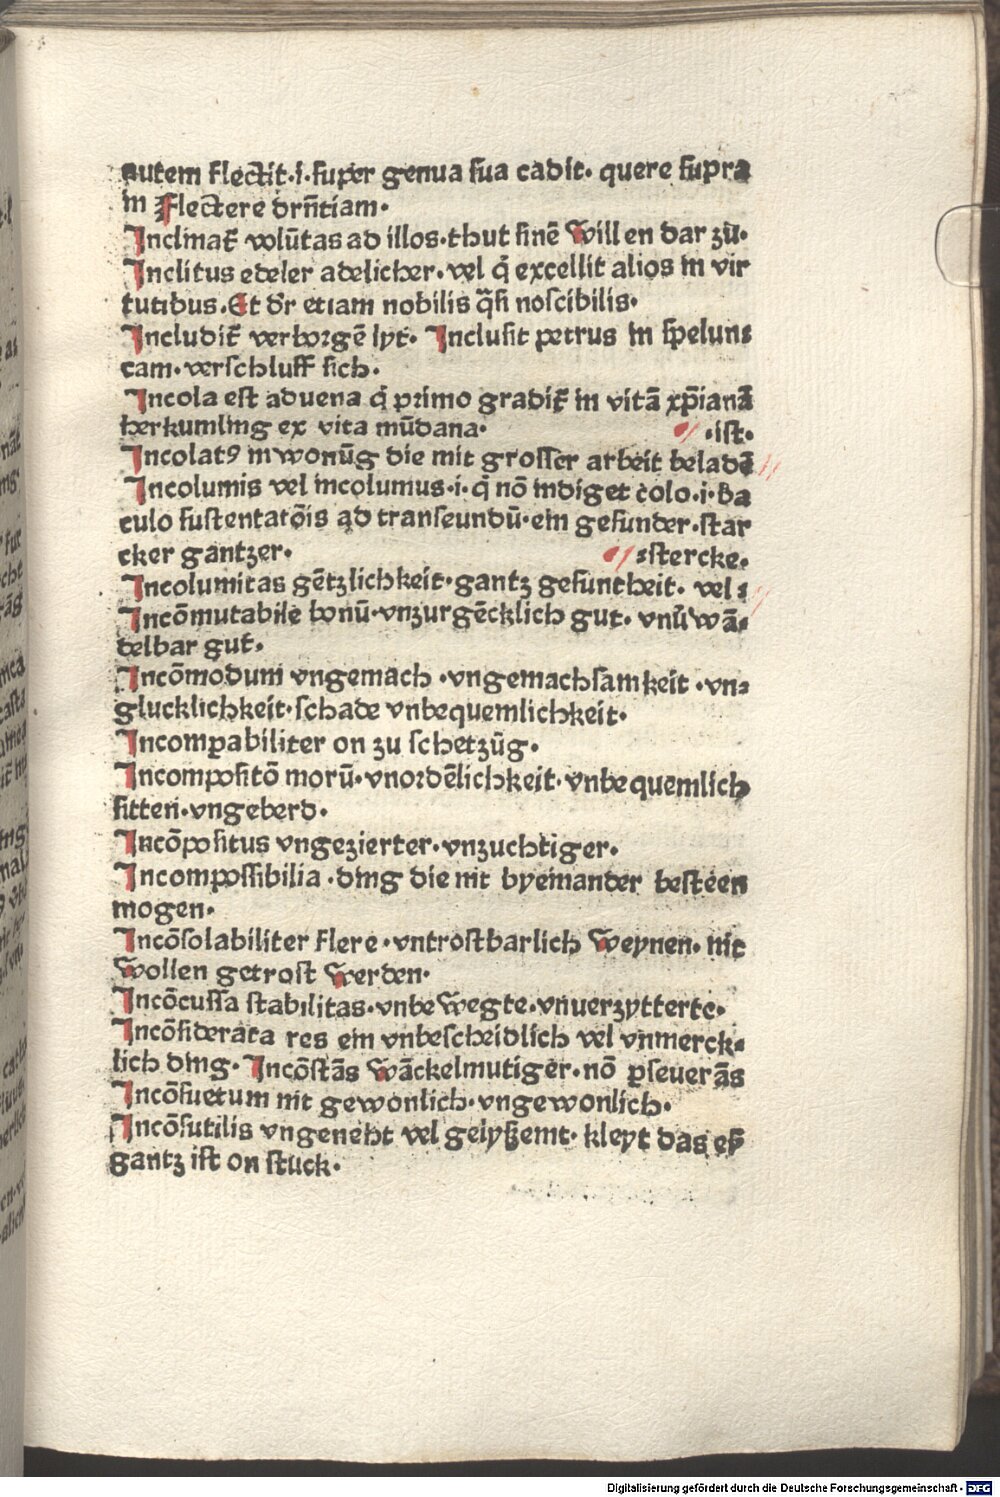 autem flectit·i·super genua sua cadit· quere supra
in Flectere drñtiam·
Inclinat᷑ volūtas ad illos·thut sinē willen dar zů·
Inclitus edeler adelicher·vel q̇ excellit alios in vir
tutibus·Et dr̃ etiam nobilis q̃si noscibilis·
Includit᷑ verborgē lyt· Inclusit petrus in spelun⸗
cam·verschluff sich·
Incola est aduena q̇ primo gradit᷑ in vitā xp̄ianā
herkumling ex vita mūdana· ·ist·
Incolatꝰ inwonūg die mit grosser arbeit beladē
Incolumis vel incolumus·i·q̇ nō indiget colo·i·ba
culo sustentatōis ad transeundū·ein gesunder·star
cker gantzer· ⸗stercke·
Incolumitas gētzlichkeit·gantz gesuntheit· vel⸗
Incōmutabile bonū·vnzurgēcklich gut· vnūwā⸗
delbar gut·
Incōmodum vngemach·vngemachsamkeit·vn⸗
glucklichkeit·schade vnbequemlichkeit·
Incomꝑabiliter on zu schetzūg·
Incompositō morū·vnordēlichkeit·vnbequemlich
sitten·vngeberd·
Incōpositus vngezierter·vnzuchtiger·
Incompossibilia·ding die nit byeinander besteen
mogen·
Incōsolabiliter flere·vntrostbarlich weynen· nit
wollen getrost werden·
Incōcussa stabilitas·vnbewegte·vnuerzytterte·
Incōsiderata res ein vnbescheidlich vel vnmerck⸗
lich ding· Incōstās wāckelmutiger·nō ꝑseuerās
Incōsuetum nit gewonlich·vngewonlich·
Incōsutilis vngeneht vel gelyßemt· kleyt das eß
gantz ist on stuck·
Digitalisierung gefördert durch die Deutsche Forschungsgemeinschaft - DFG